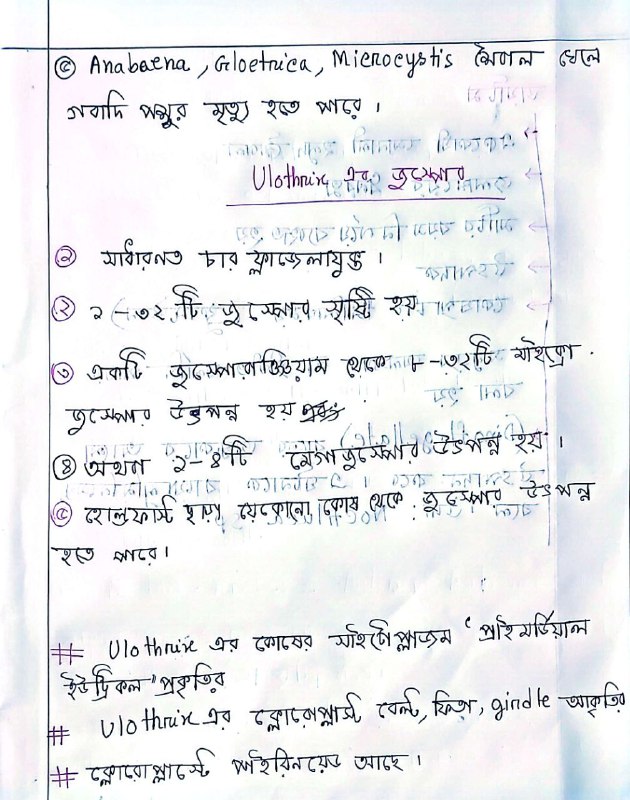 ৫ Anabaena, Gloetrica, Microcystis শৈবাল খেলে
গবাদি পশুর মৃত্যু হতে পারে।
Ulothrix এর জুস্পোর
১ সাধারনত চার ফ্লাজেলাযুক্ত।
২ ২-৩২ টি জুস্পোর সৃষ্টি হয়
৩ একটি জুস্পোরাঞ্জিয়াম থেকে ৮-৩২টি মাইক্রো
জুস্পোর উৎপন্ন হয়
৪ অথবা ২-৪টি মেগাজুস্পোর উৎপন্ন হয়।
৫ হোল্ডফাস্ট ছাড়া যেকোনো কোষ থেকে জুস্পোর উৎপন্ন
হতে পারে।
# Ulothrix এর কোষের সাইটোপ্লাজম "প্রাইমর্ডিয়াল
ইউট্রিকল" প্রকৃতির
# Ulothrix এর ক্লোরোপ্লাস্ট বেল্ট, ফিতা, girdle আকৃতির
# ক্লোরোপ্লাস্টে পাইরিনয়েড আছে।